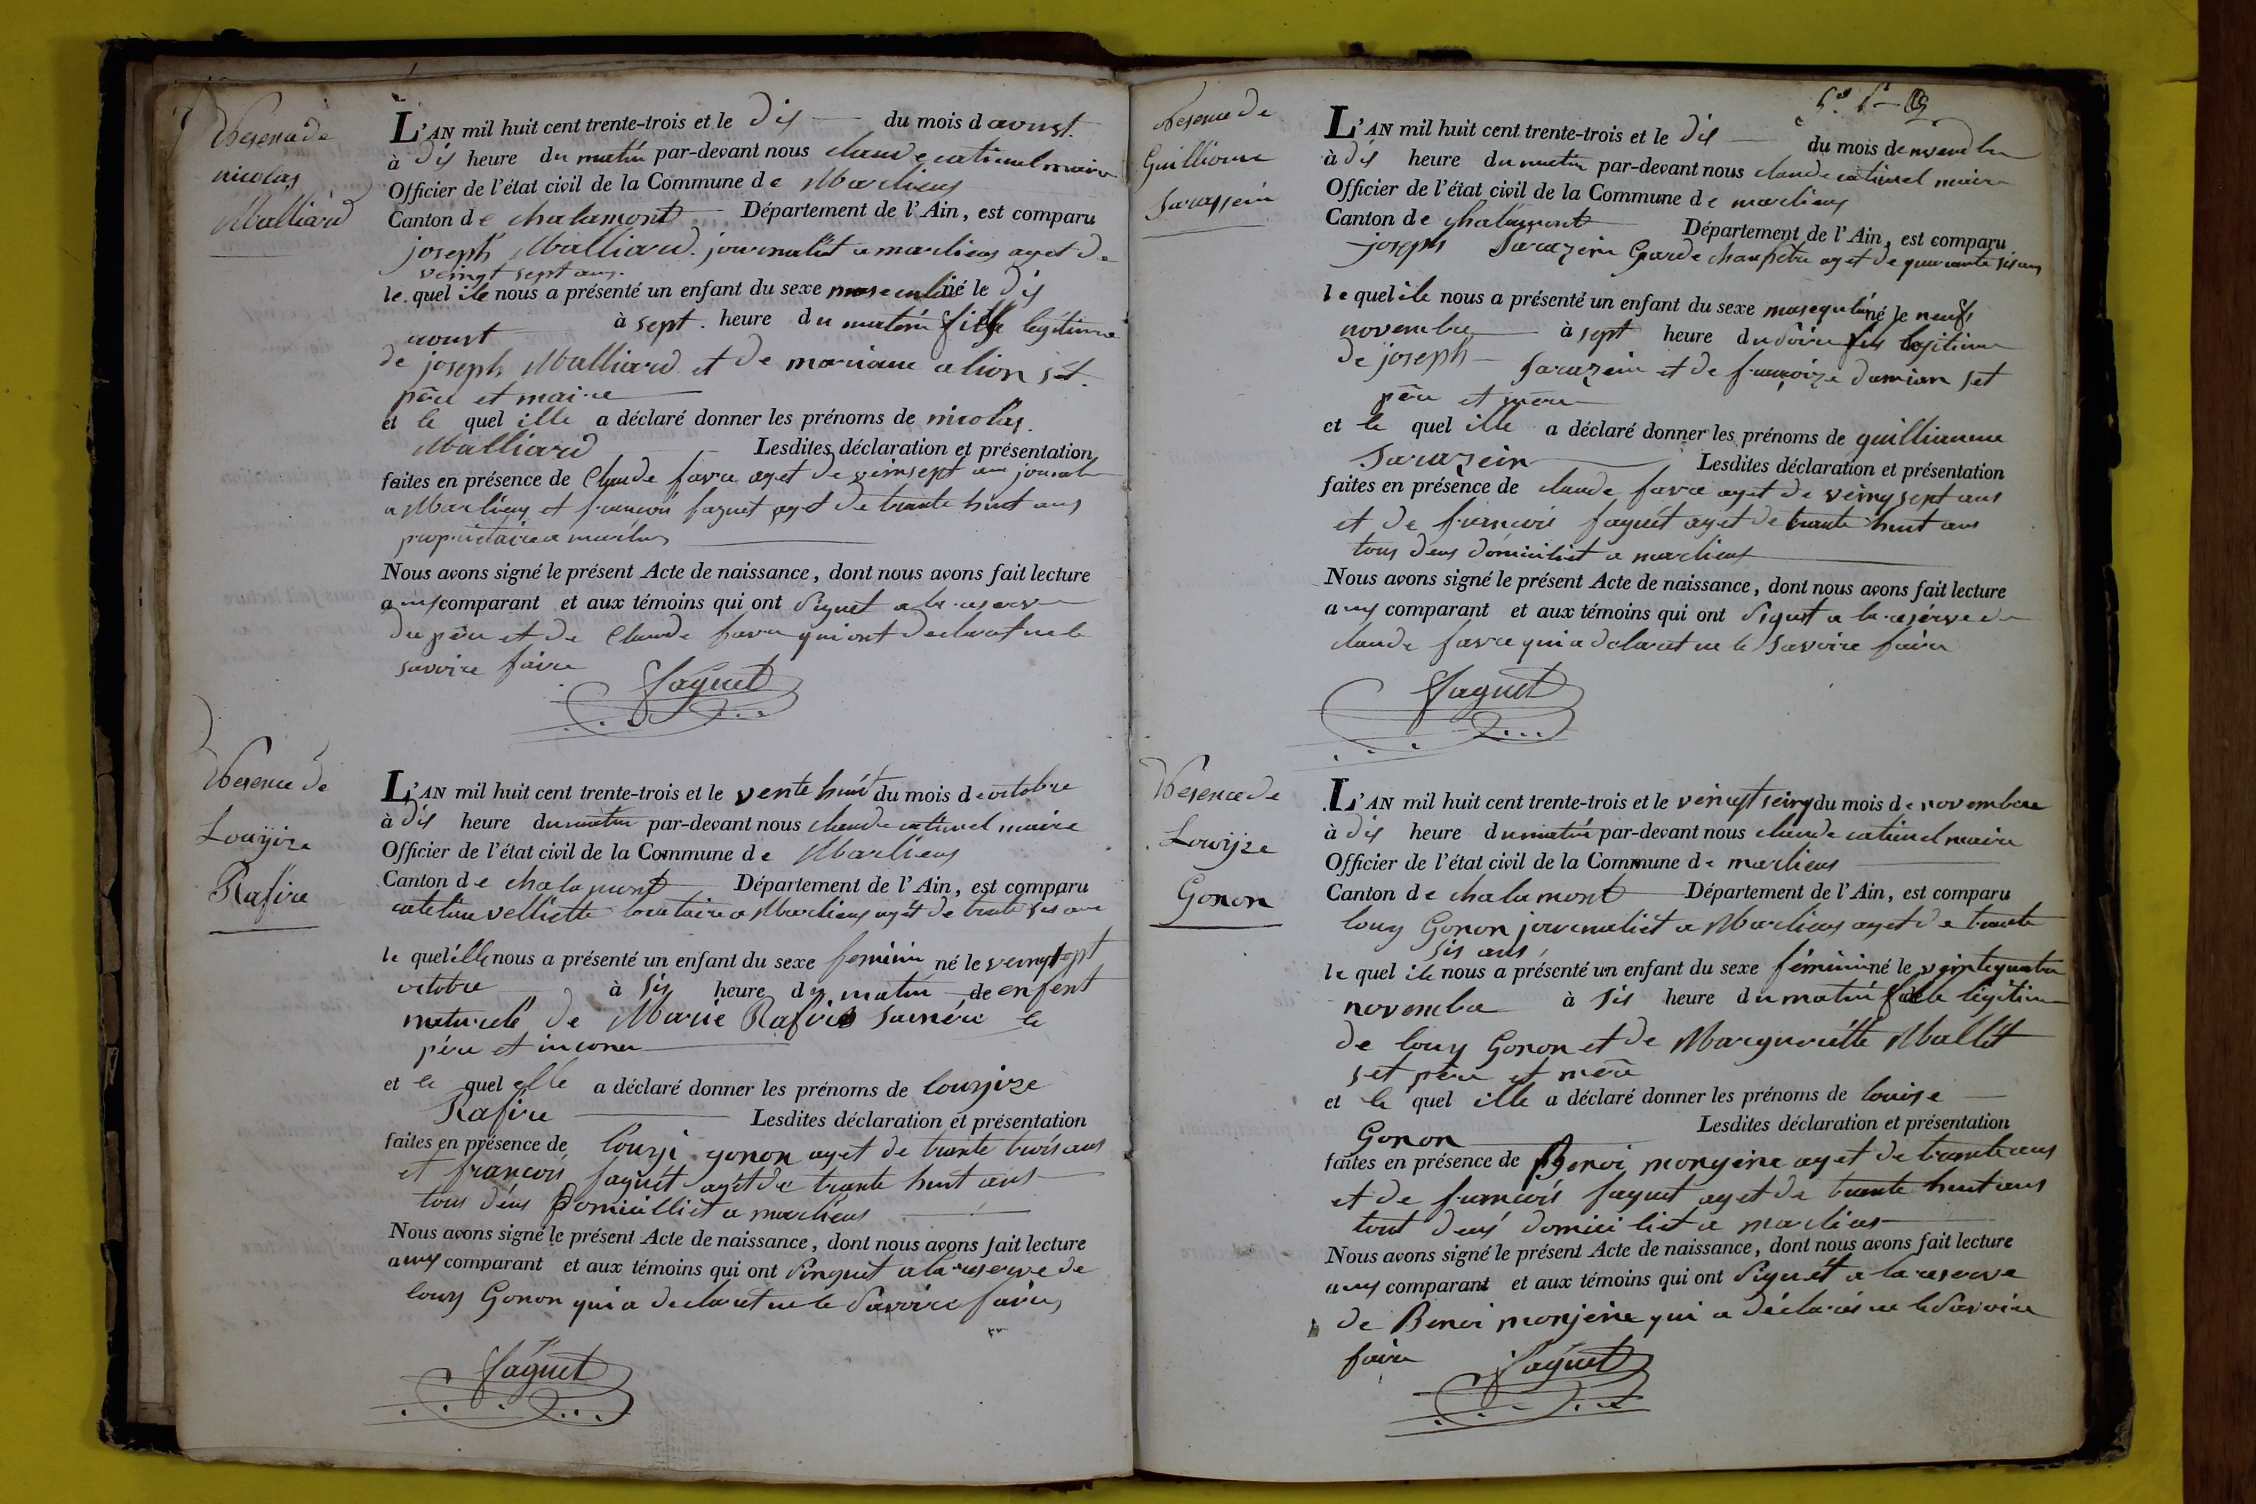 nicolas
Malliard
L'AN mil huit cent trente-trois et le Dis du mois d aoust
à Dis heure du matin par-devant nous claude catinel maire
Officier de l'état civil de la Commune de Marlieux
Canton de chalamont Département de l'Ain, est comparu
joseph Malliard journalist a marlieux aget de
veingt sept ans
le quel ile nous a présenté un enfant du sexe masculin né le Dis
aoust à sept heure du matin legitime
de joseph Malliard et de mariane alion set
père et maire
et le quel ille a déclaré donner les prénoms de nicolas
Malliard Lesdites déclaration et présentation
faites en présence de Claude favre aget de veinsept ans
a Marlieux et françois faguet aget de trante huit ans
propriétaire a marlieux
Nous avons signé le présent Acte de naissance, dont nous avons fait lecture
aux comparant et aux témoins qui ont signet a la reserve
du père et de Claude favre qui ont declarat ne le
savoire faire
faguet
Louyize
Rafire
L'AN mil huit cent trente-trois et le vente huit du mois de octobre
à Dis heure du matin par-devant nous claude catinel maire
Officier de l'état civil de la Commune de Marlieux
Canton de chalamont Département de l'Ain, est comparu
cateline velliette locataire a Marlieux aget de trante sis ans
le quel ille nous a présenté un enfant du sexe feminin né le veingt sept
octobre à sis heure du matin de enfent
naturele de Marie Rafire le
père et inconu
et le quel elle a déclaré donner les prénoms de louyize
Rafire Lesdites déclaration et présentation
faites en présence de Louyi gonon aget de trante trois ans
et françois faguet aget de trante huit ans
tous deus Domicilliet a marlieux
Nous avons signé le présent Acte de naissance, dont nous avons fait lecture
aux comparant et aux témoins qui ont singuet a la reserve de
louy Gonon qui a declarat ne le savoire faire
faguet
Guilliaume
Sarassein
L'AN mil huit cent trente-trois et le Dis du mois de novembre
à Dis heure du matin par-devant nous claude catinel maire
Officier de l'état civil de la Commune de marlieux
Canton de chalamont Département de l'Ain, est comparu
joseph Sarazein Garde champetre aget de quarante sis ans
le quel ile nous a présenté un enfant du sexe masqulin né le neufs
novembre à sept heure du soire fils legitime
de joseph Sarazein et de françoize damian set
père et mère
et le quel ille a déclaré donner les prénoms de guilliaume
Sarazein Lesdites déclaration et présentation
faites en présence de claude favre aget de veing sept ans
et de françois faguet aget de trante huit ans
tous deus domiciliet a marlieux
Nous avons signé le présent Acte de naissance, dont nous avons fait lecture
aux comparant et aux témoins qui ont signet a la reserve de
claude favre qui a declarat ne le savoire faire
faguet
Louyize
Gonon
L'AN mil huit cent trente-trois et le veingt seinq du mois de novembre
à Dis heure du matin par-devant nous claude catinel maire
Officier de l'état civil de la Commune de marlieux
Canton de chalamont Département de l'Ain, est comparu
louy Gonon journaliet a Marlieux aget de trante
sis ans
le quel ile nous a présenté un enfant du sexe féminin né le veintequatre
novembre à sis heure du matin legitime
de louy Gonon et de Marguerite Mallet
set père et mère
et le quel ille a déclaré donner les prénoms de louise
Gonon Lesdites déclaration et présentation
faites en présence de Benoi monjeine aget de trante ans
et de françois faguet aget de trante huit ans
tout deus domiciliet a marlieux
Nous avons signé le présent Acte de naissance, dont nous avons fait lecture
aux comparant et aux témoins qui ont signet a la reserve
de Benoi monjeine qui a déclarés ne le savoire
faire
faguet